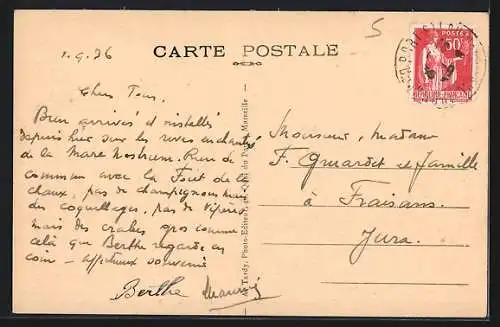 5
1.9.36
CARTE POSTALE
Chers Tous.
Bien arrivés et installés
depuis hier sur les rives enchantées
de la Mare Nostrum. Rien de
commun avec la Foret de la
chaux, pas de champignons mais
des coquillages, pas de vipères
mais des crabes gros comme
celà que Berthe regarde en
coin - affectueux souvenirs
Berthe Maurice
Tardy, Photo-Editeur, Marseille
POSTES
50c
Monsieur, Madame
F. et famille
à Fraisans.
Jura.